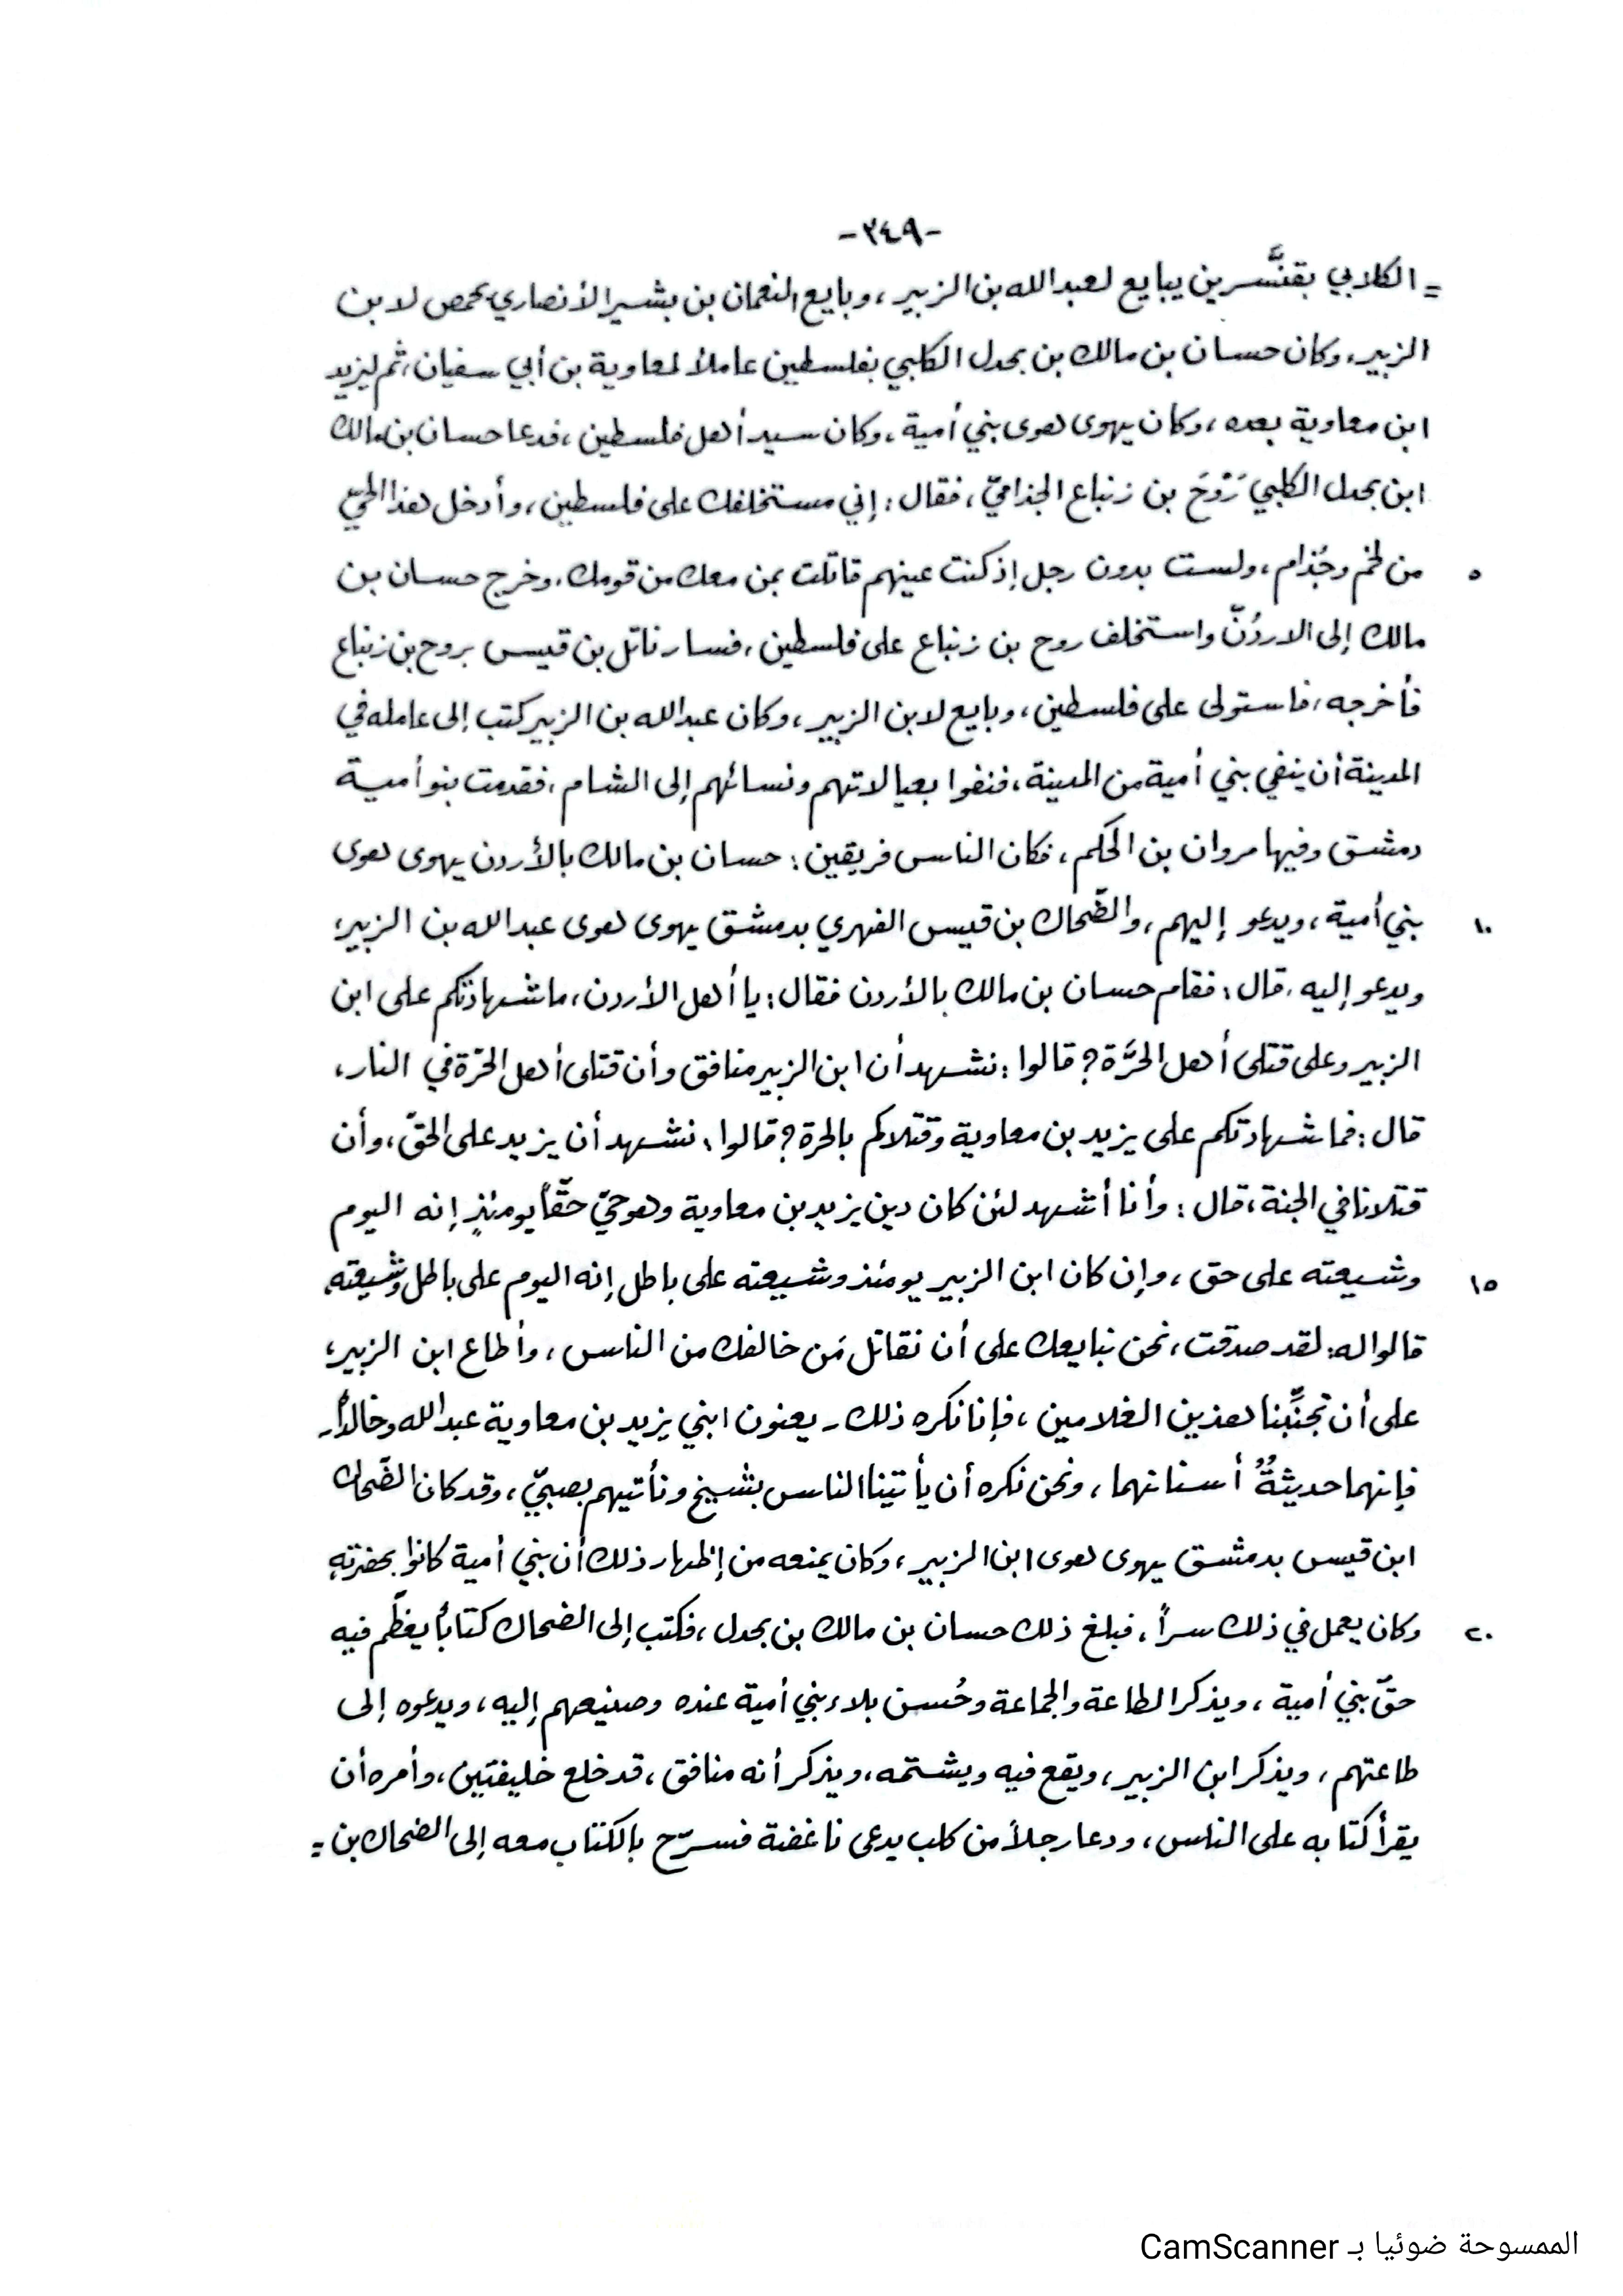 -٣٤٩-
= الكلابي بقنَّسرين يبايع لعبد الله بن الزبير، وبايع النعمان بن بشير الأنصاري بحمص لابن
الزبير، وكان حسان بن مالك بن بحدل الكلبي بفلسطين عاملاً لمعاوية بن أبي سفيان، ثم ليزيد
ابن معاوية بعده، وكان يهوى هوى بني أمية، وكان سيد أهل فلسطين، فدعا حسان بن مالك
ابن بحدل الكلبي رَوْحَ بن زنباع الجذاميّ، فقال: إني مستخلفك على فلسطين، وأدخل هذا الحيّ
٥ من لخم وجُذام، ولست بدون رجل إذ كنت عينهم قاتلت بمن معك من قومك. وخرج حسان بن
مالك إلى الاردُنّ واستخلف روح بن زنباع على فلسطين، فسار ناتل بن قيس بروح بن زنباع
فأخرجه، فاستولى على فلسطين، وبايع لابن الزبير، وكان عبد الله بن الزبير كتب إلى عامله في
المدينة أن ينفي بني أمية من المدينة، فنفوا بعيالاتهم ونسائهم إلى الشام، فقدمت بنو أمية
دمشق وفيها مروان بن الحكم، فكان الناس فريقين: حسان بن مالك بالأردن يهوى هوى
١٠ بني أمية، ويدعو إليهم، والضّحاك بن قيس الفهري بدمشق يهوى هوى عبد الله بن الزبير،
ويدعو إليه. قال: فقام حسان بن مالك بالأردن فقال: يا أهل الأردن، ما شهادتكم على ابن
الزبير وعلى قتلى أهل الحَرَّة؟ قالوا: نشهد أن ابن الزبير منافق وأن قتلى أهل الحَرّة في النار،
قال: فما شهادتكم على يزيد بن معاوية وقتلاكم بالحرة؟ قالوا: نشهد أن يزيد على الحقّ، وأن
قتلانا في الجنة، قال: وأنا أشهد لئن كان دين يزيد بن معاوية وهو حيّ حقّاً يومئذٍ إنه اليوم
١٥ وشيعته على حق، وإن كان ابن الزبير يومئذ وشيعته على باطل إنه اليوم على باطل وشيعته.
قالوا له: لقد صدقت، نحن نبايعك على أن نقاتل مَن خالفك من الناس، وأطاع ابن الزبير،
على أن تجنِّبنا هذين الغلامين، فإنا نكره ذلك - يعنون ابني يزيد بن معاوية عبد الله وخالداً -
فإنهما حديثةٌ أسنانهما، ونحن نكره أن يأتينا الناس بشيخ ونأتيهم بصبيّ، وقد كان الضّحاك
ابن قيس بدمشق يهوى هوى ابن الزبير، وكان يمنعه من إظهار ذلك أن بني أمية كانوا بحضرته
٢٠ وكان يعمل في ذلك سراً، فبلغ ذلك حسان بن مالك بن بحدل، فكتب إلى الضحاك كتاباً يعظّم فيه
حقّ بني أمية، ويذكر الطاعة والجماعة وحُسن بلاء بني أمية عنده وصنيعهم إليه، ويدعوه إلى
طاعتهم، ويذكر ابن الزبير، ويقع فيه ويشتمه، ويذكر أنه منافق، قد خلع خليفتين، وأمره أن
يقرأ كتابه على الناس، ودعا رجلاً من كلب يدعى ناغضة فسرّح بالكتاب معه إلى الضحاك بن =
الممسوحة ضوئيا بـ CamScanner